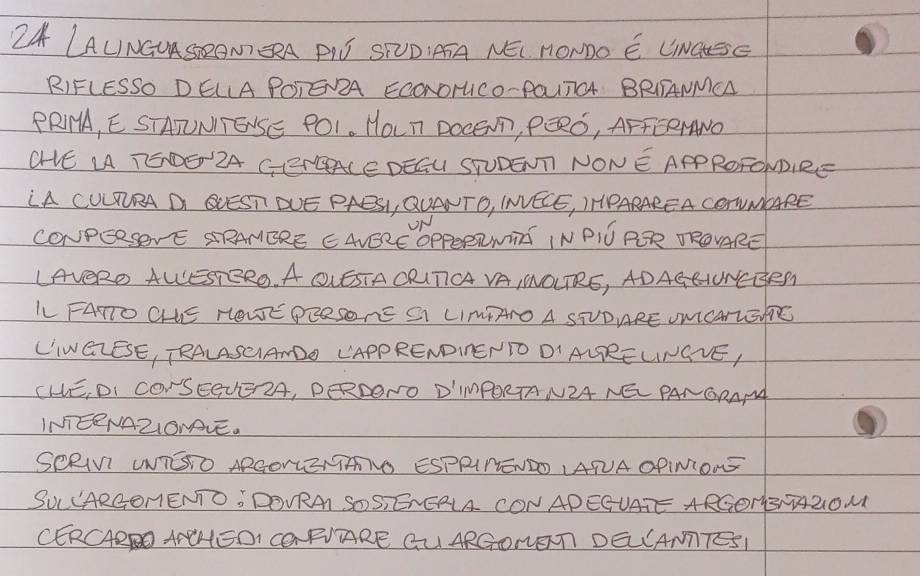 24 LA LINGUA STRANIERA PIÚ STUDIATA NEL MONDO É L'INGLESE
RIFLESSO DELLA POTENZA ECONOMICO-POLITICA BRITANNICA
PRIMA, E STATUNITENSE POI. MOLTI DOCENTI, PERÓ, AFFERMANO
CHE LA TENDENZA GENERALE DEGLI STUDENTI NON É APPROFONDIRE
LA CULTURA DI QUESTI DUE PAESI, QUANTO, INVECE, IMPARARE A COMUNICARE
CON PERSONE STRANIERE E AVERE UN OPPORTUNITÁ IN PIÚ PER TROVARE
LAVORO ALL'ESTERO. A QUESTA CRITICA VA, INOLTRE, AD AGGIUNGERSI
IL FATTO CHE MOLTE PERSONE SI LIMITANO A STUDIARE UNICAMENTE
L'INGLESE, TRALASCIANDO L'APPRENDIMENTO DI ALTRE LINGUE,
CHE, DI CONSEGUENZA, PERDONO D'IMPORTANZA NEL PANORAMA
INTERNAZIONALE.
SCRIVI UN TESTO ARGOMENTATIVO ESPRIMENDO LA TUA OPINIONE
SULL'ARGOMENTO: DOVRAI SOSTENERLA CON ADEGUATE ARGOMENTAZIONI
CERCANDO ANCHE DI CONFUTARE GLI ARGOMENTI DELL'ANTITESI